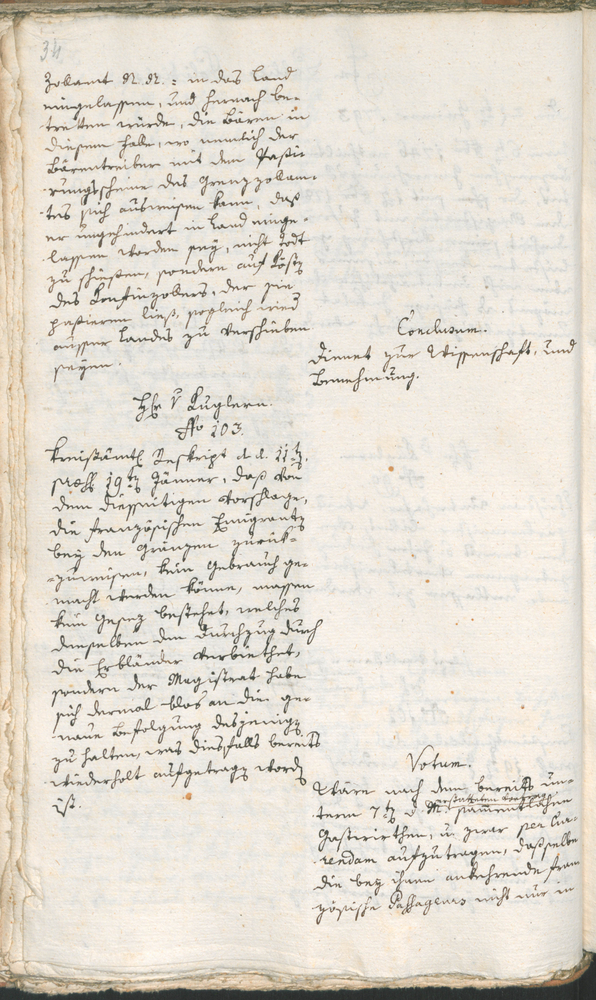 34
Zollamt N. N.: in das Land
eingelassen, und hernach be-
tretten würde, die Bären in
diesem Falle, wo nemlich der
Bärentreiber mit dem Passi-
rungsscheine des Grenzzollam-
tes sich ausweisen kann, daß
er ungehindert in Land einge-
lassen worden sey, nicht todt
zu schießen, sondern auf Kösten
des Confinzollers, der sie
passieren ließ, sogleich wied
ausser Landes zu verschieben
seyen.
Conclusum.
Dienet zur Wissenschaft, und
Benehmung.
H v Kuglern.
No 103.
Kreisämtl Reskript d. d. 11t
19t Jänner, daß von
dem diesseitigen Vorschlage,
die französischen Emigranten
bey den Gränzen zurük-
zuweisen, kein Gebrauch ge-
macht werden könne, massen
kein Gesez bestehet, welches
denselben den Durchzug durch
die Erbländer verbiethet,
sondern der Magistrat habe
sich dermal blos an die ge-
naue Befolgung desjenigen
zu halten, was diesfalls bereits
wiederholt aufgetragen worden
ist.
Votum.
Wäre nach dem bereits un-
term 7t d. M. erstatteten
sämmentlichen
Gastwirthen, u. zwar per Cur-
rendam aufzutragen, daß selbe
die bey ihnen ankehrende fran
zösische Passageurs nicht nur in